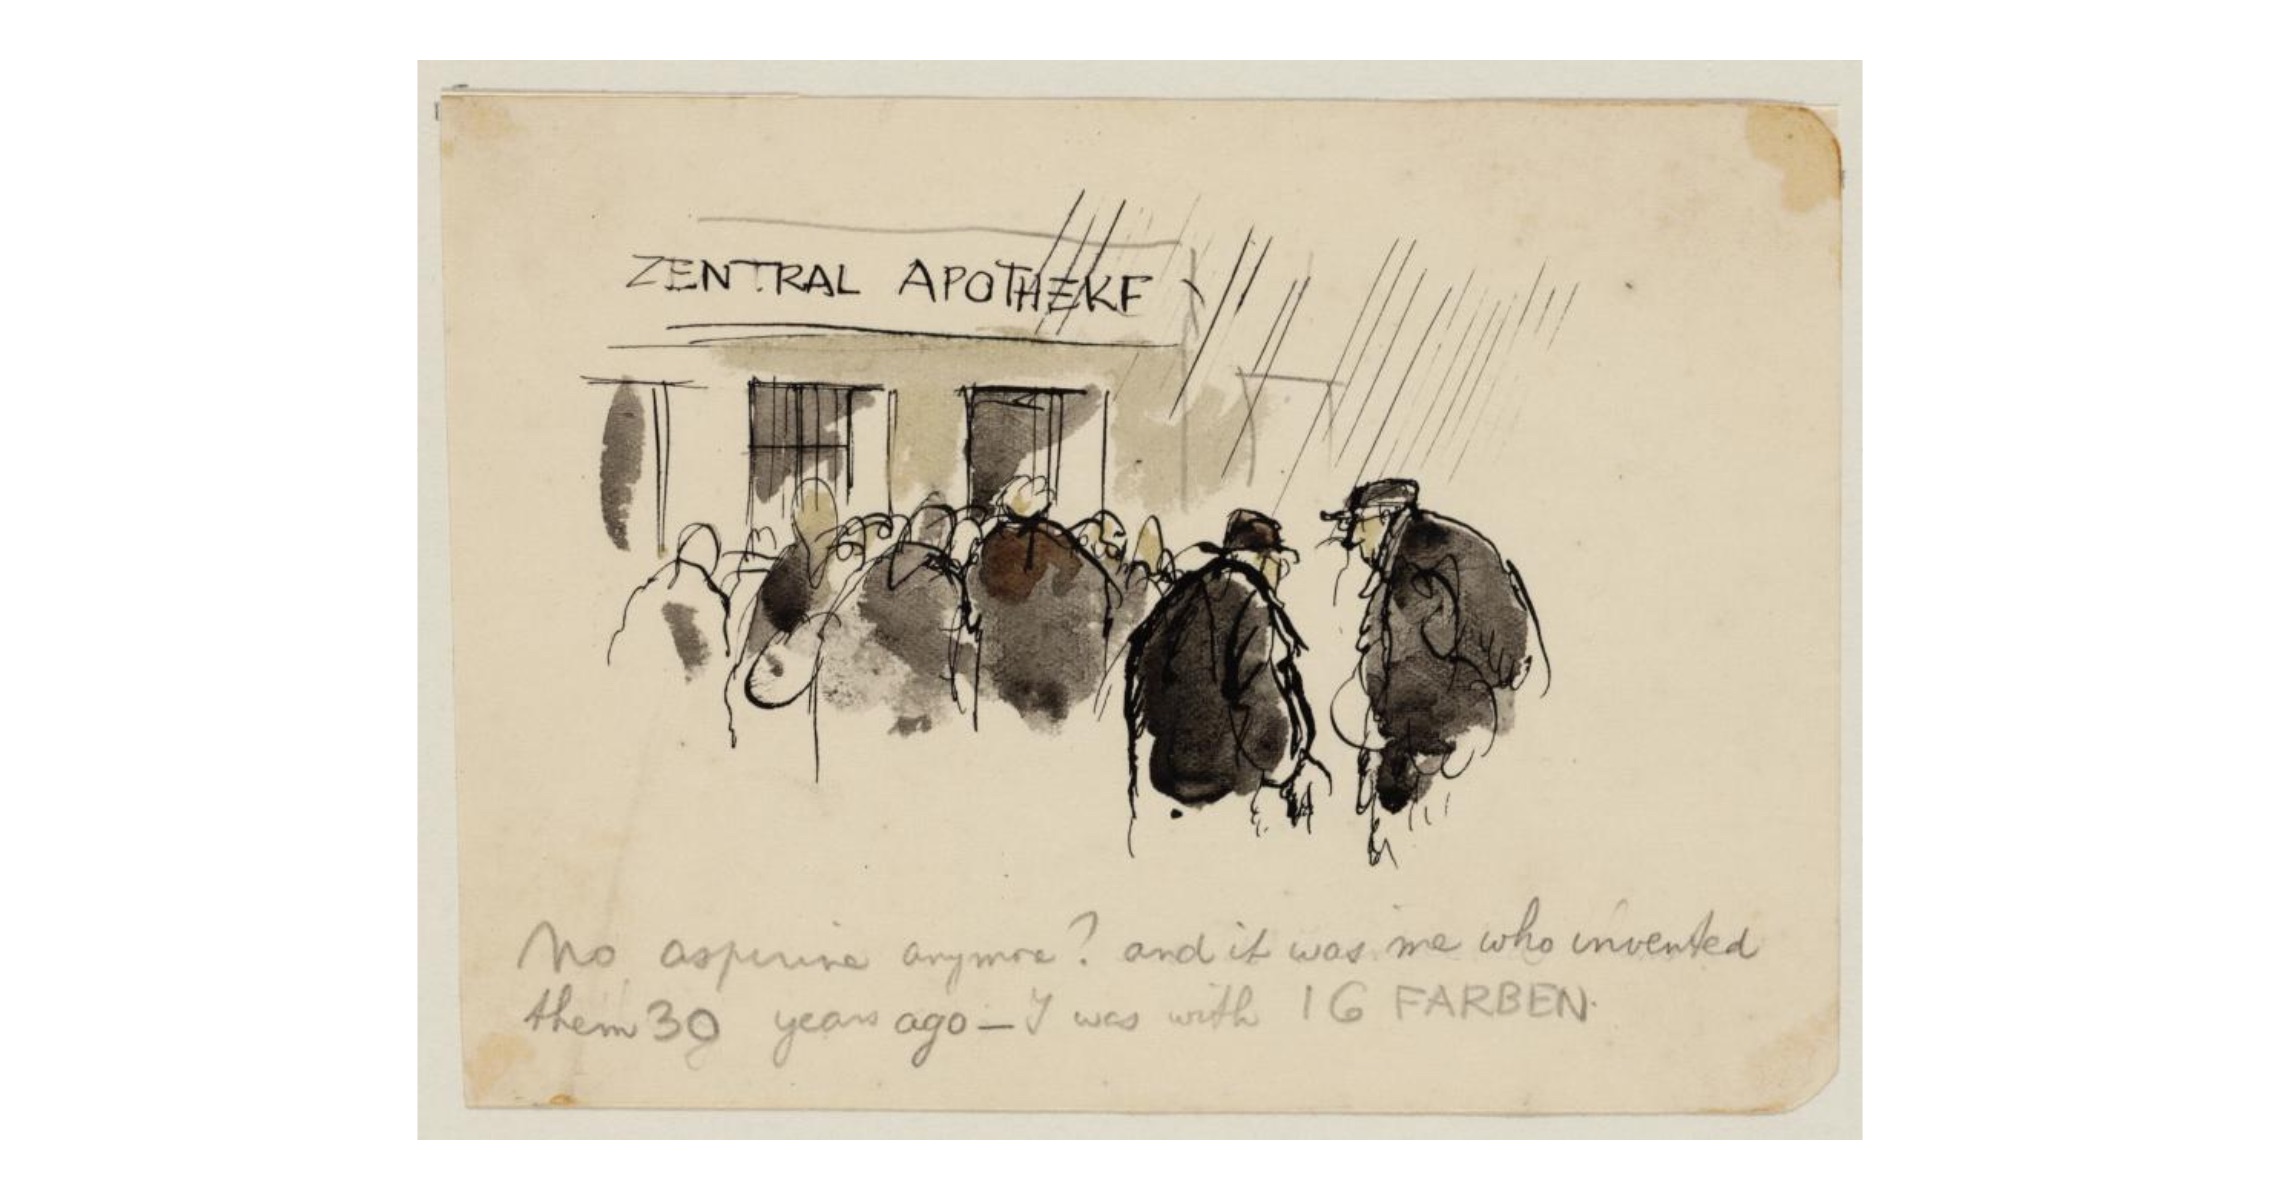 ZENTRAL APOTHEKE
No aspirine anymore? and it was me who invented
them 30 years ago — I was with IG FARBEN.